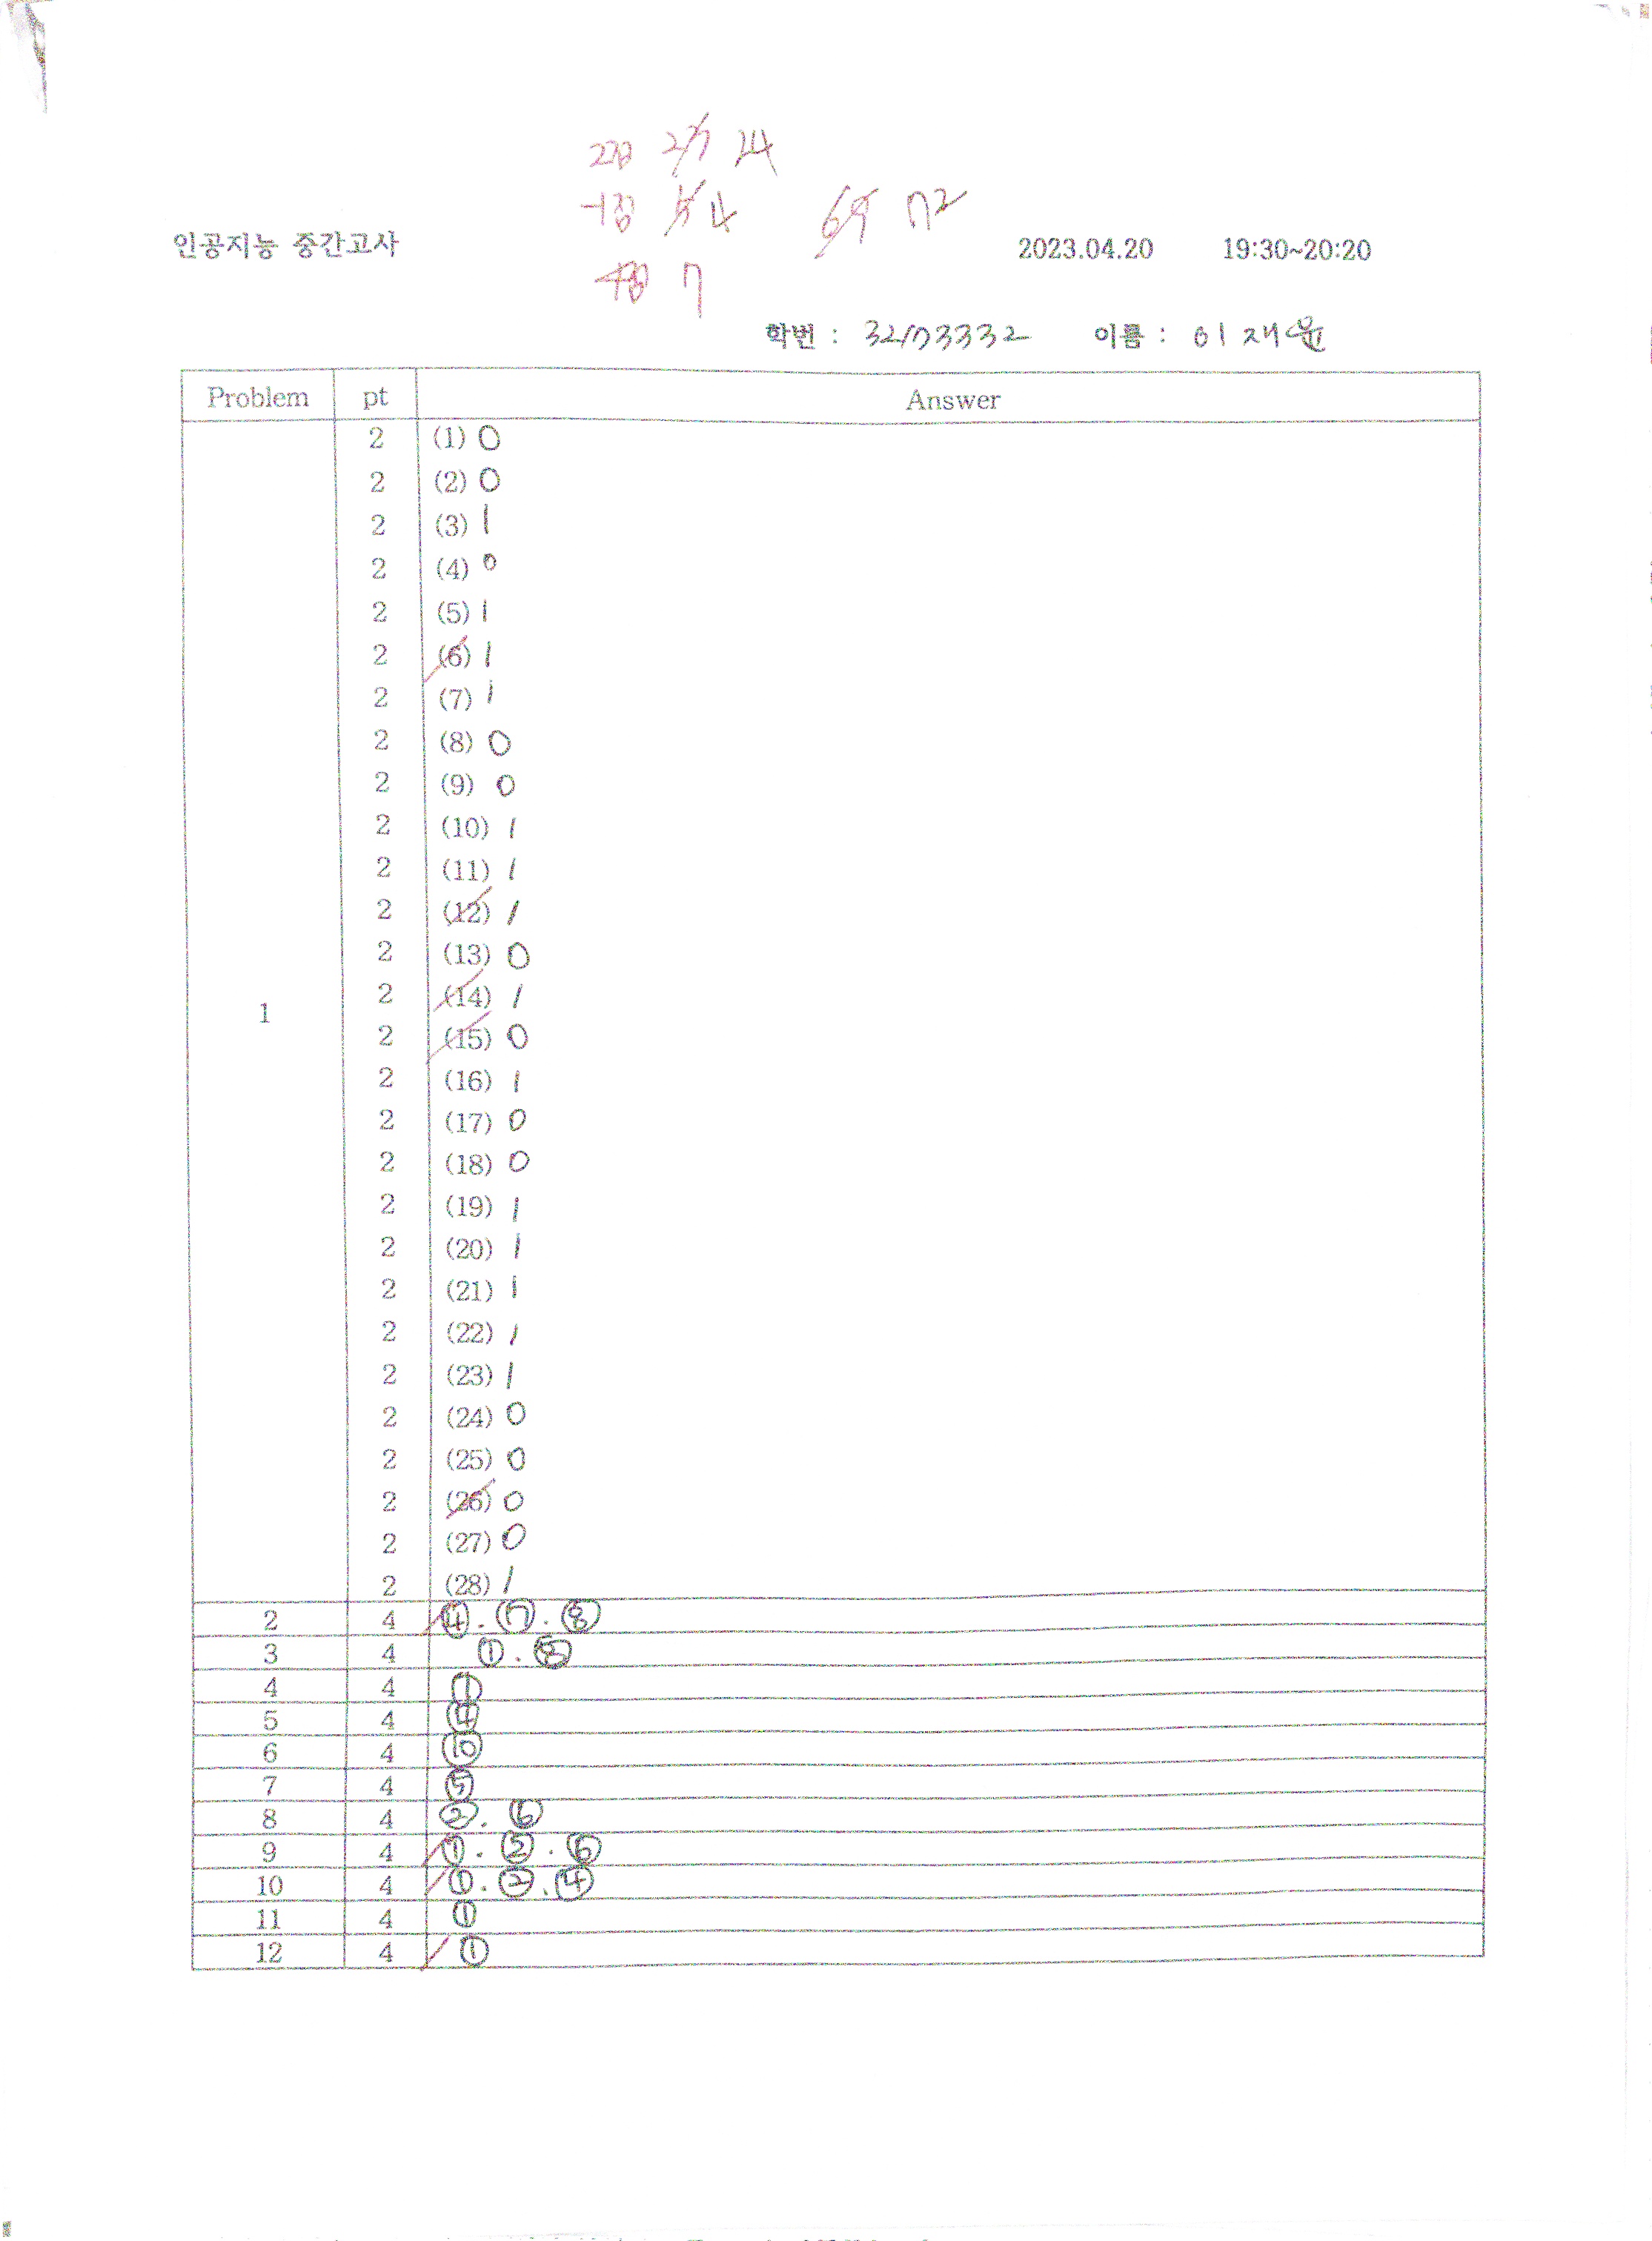 2점 27 24
-1점 5 4 69 72
인공지능 중간고사 2023.04.20 19:30~20:20
4점 7
학번 : 32173332 이름 : 이재윤
Problem pt Answer
2 (1) 0
2 (2) 0
2 (3) 1
2 (4) 0
2 (5) 1
2 (6) 1
2 (7) 1
2 (8) 0
2 (9) 0
2 (10) 1
2 (11) 1
2 (12) 1
2 (13) 0
2 (14) 1
1
2 (15) 0
2 (16) 1
2 (17) 0
2 (18) 0
2 (19) 1
2 (20) 1
2 (21) 1
2 (22) 1
2 (23) 1
2 (24) 0
2 (25) 0
2 (26) 0
2 (27) 0
2 (28) 1
2 4 ④. ⑦. ⑧
3 4 ①. ⑧
4 4 ①
5 4 ④
6 4 ⑩
7 4 ⑤
8 4 ②. ⑥
9 4 ①. ②. ⑥
10 4 ①. ②. ④
11 4 ①
12 4 ①